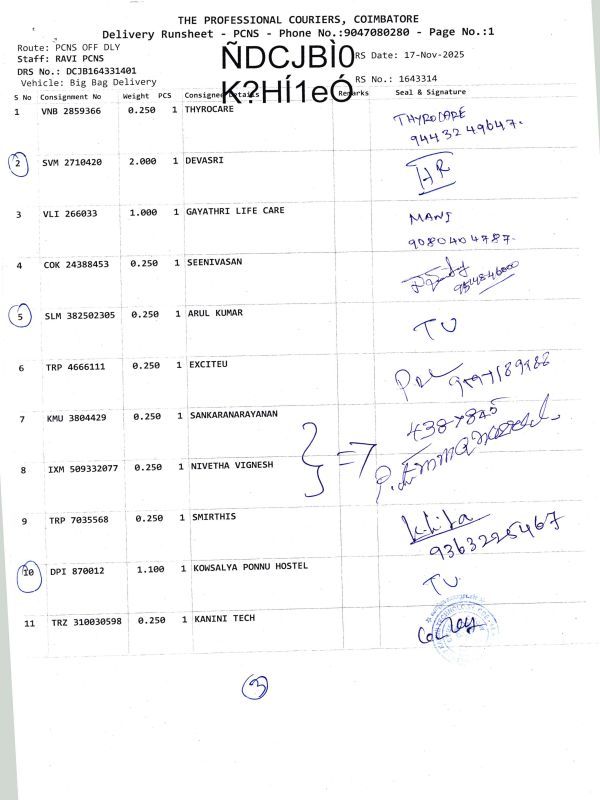 THE PROFESSIONAL COURIERS, COIMBATORE
Delivery Runsheet - PCNS - Phone No.:9047080280 - Page No.:1
Route: PCNS OFF DLY
Staff: RAVI PCNS
DRS No.: DCJB164331401
Vehicle: Big Bag Delivery
ÑDCJBÌ0
K?HÍ1eÓ
RS Date: 17-Nov-2025
RS No.: 1643314
S No Consignment No Weight PCS Consignee Details Remarks Seal & Signature
1 VNB 2859366 0.250 1 THYROCARE THYROCARE
9443249647.
2 SVM 2710420 2.000 1 DEVASRI HR
3 VLI 266033 1.000 1 GAYATHRI LIFE CARE MANI
9080404787.
4 COK 24388453 0.250 1 SEENIVASAN
5 SLM 382502305 0.250 1 ARUL KUMAR TU
6 TRP 4666111 0.250 1 EXCITEU
7 KMU 3804429 0.250 1 SANKARANARAYANAN
} = 7
8 IXM 509332077 0.250 1 NIVETHA VIGNESH
9 TRP 7035568 0.250 1 SMIRTHIS
10 DPI 870012 1.100 1 KOWSALYA PONNU HOSTEL TU
11 TRZ 310030598 0.250 1 KANINI TECH
3